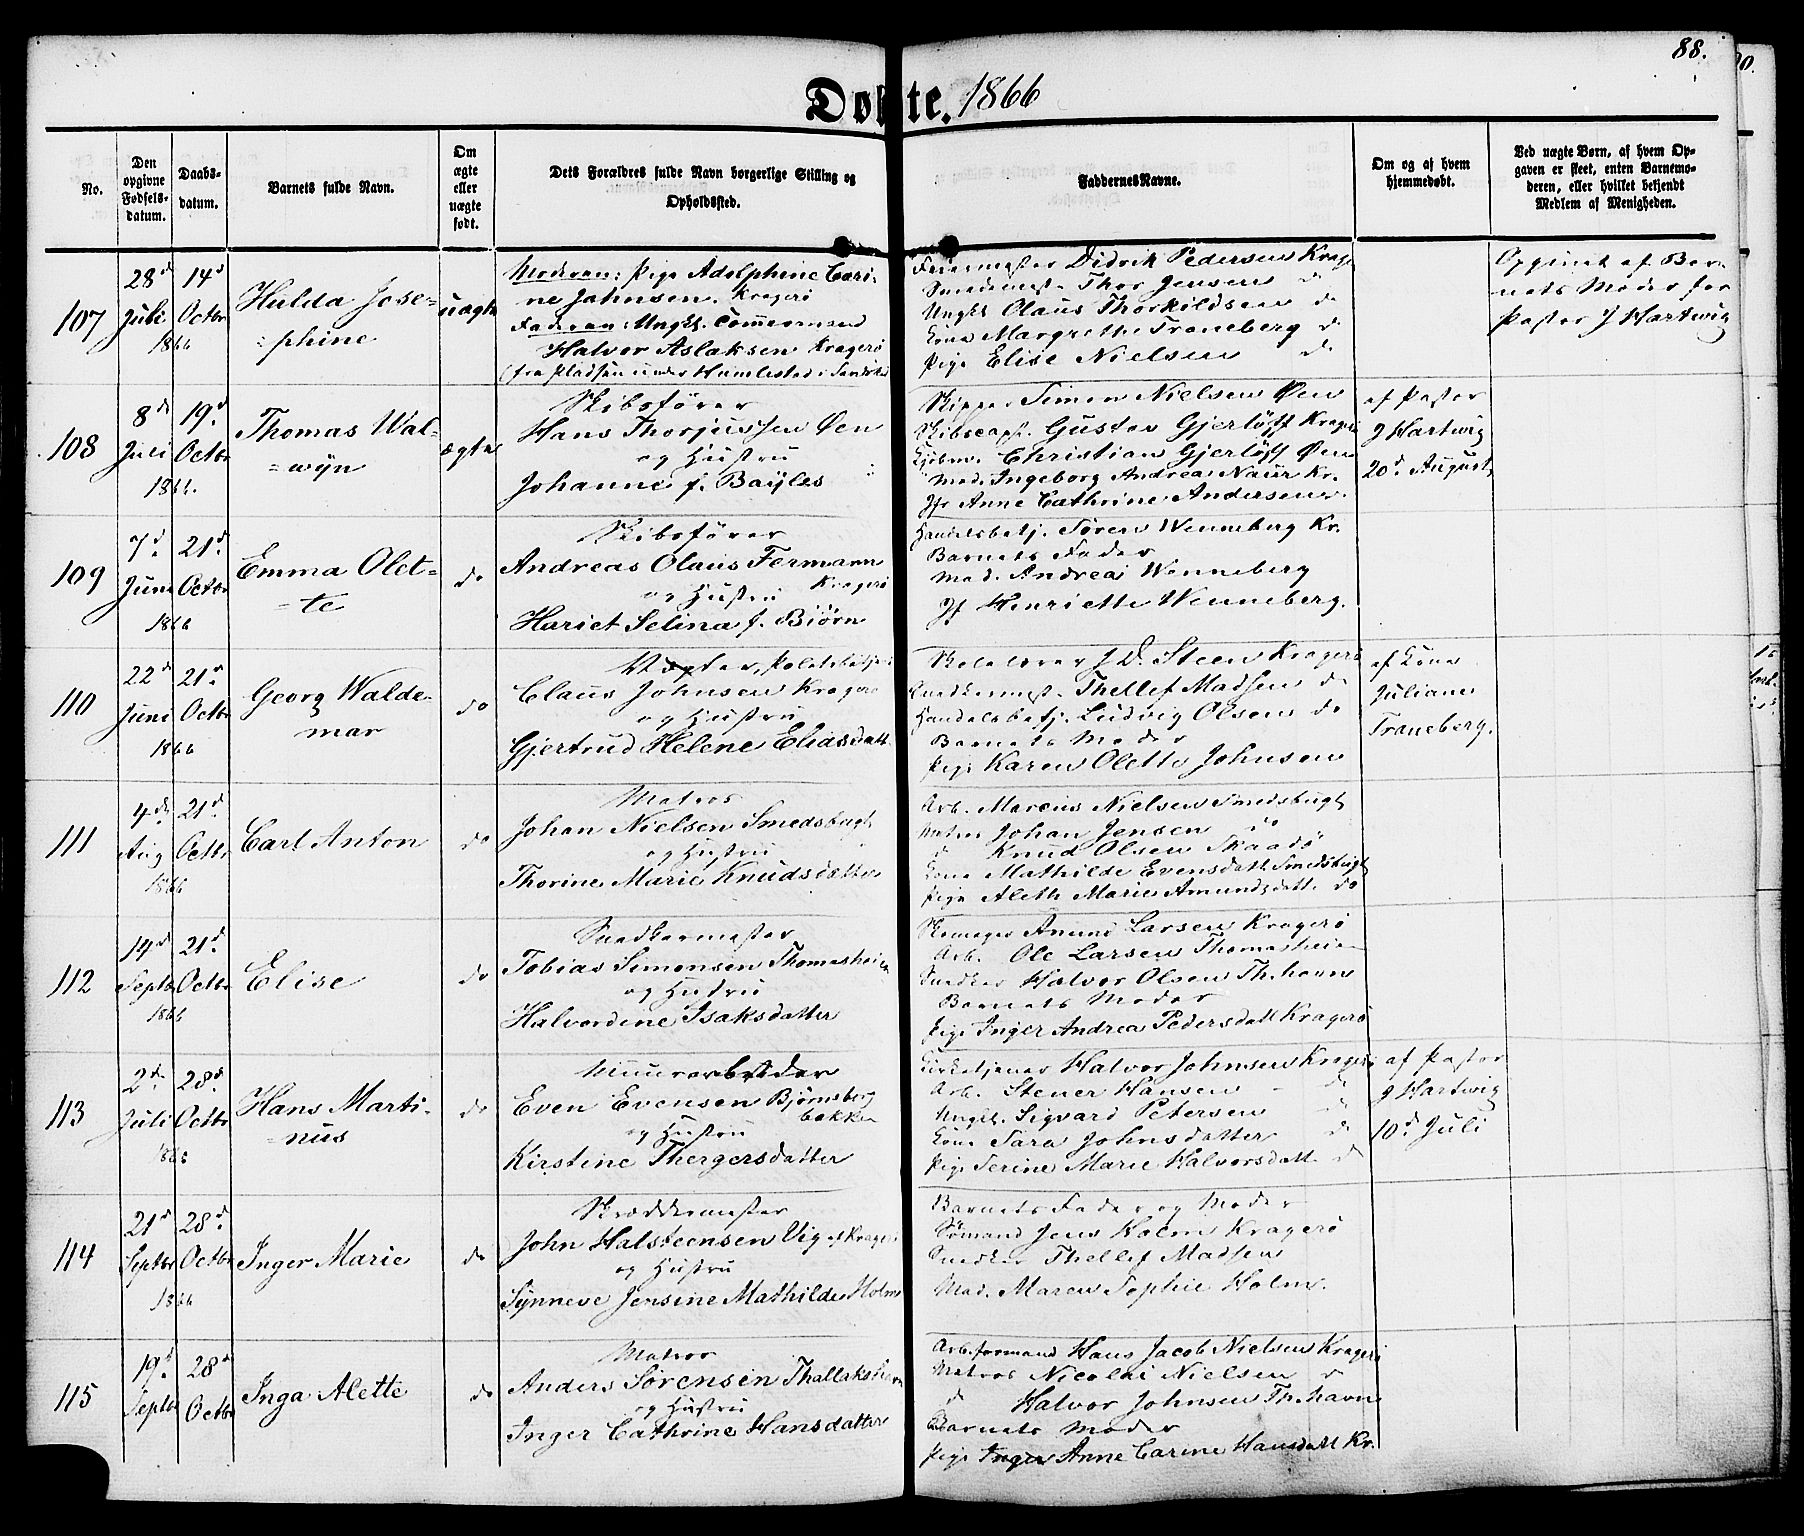 88.
Døbte. 1866
No.
Den opgivne Fødsels-datum.
Daabs-datum.
Barnets fulde Navn.
Om ægte eller uægte født.
Dets Forældres fulde Navn borgerlige Stilling og Opholdssted.
Faddernes Navne.
Om og af hvem hjemmedøbt.
Ved uægte Børn, af hvem Opgaven er skeet, enten Barnemoderen, eller hvilket bekjendt Medlem af Menigheden.
107
28d Juli 1866
14d Octbr
Hulda Jose-
=phine
uægte
Moderen: Pige Adolphine Cari-
ne Johnsen. Kragerö
Faderen: Ungkl. Tømmermand
Halvor Aslaksen Kragerö
(fra Pladsen under Humlestad i Sandökedal
Didrik Pedersen Kragerö
Smedemest. Thor Jensen do
Ungkl Olaus Thorkildsen do
Kone Margrethe Traneberg do
Pige Elise Nielsen do
Opgivet af Bar-
nets Moder for
Pastor J Hartwig
108
8de Juli 1866.
19d Octbr
Thomas Wal-
=wÿn
ægte
Skibsfører
Hans Thorjussen Øen
og Hustru
Johanne f. Baÿles
Skipper Simon Nielsen Øen
Skibscapt. Gustav Gjerløff Kragerö
Kjøbm. Christian Gjerløff Øen
Mad. Ingeborg Andrea Naur Kr.
Jfr Anne Cathrine Andersen.
af Pastor
J Hartwig
20d August
109
7d. Juni 1866
21d. Octbr
Emma Olet-
=te
do
Skibsfører
Andreas Olaus Fermann
Kragerö
og Hustru
Hariet Selina f. Biørn
Handelsbetj. Søren Wenneberg Kr.
Barnets Fader
Mad. Andrea Wenneberg
Jf Henriette Wenneberg.
110
22d Juni 1866
21d. Octbr
Georg Walde-
mar
do
Vægter, Politibetjent
Claus Johnsen Kragerö
og Hustru
Gjertrud Helene Eliasdatt
Skolelærer J D. Steen Kragerö
Snedkermest. Thellef Madsen do
Handelsbetj. Ludvig Olsen do
Barnets Moder
Pige Karen Olette Johnsen
af Kone
Juliane
Traneberg.
111
4de Aug 1866
21d. Octbr
Carl Anton
do
Matros
Johan Nielsen Smedsbugt
og Hustru
Thorine Marie Knudsdatter
Arb. Marcus Nielsen Smedsbugt
Matros Johan Jensen do
do Knud Olsen Skaadö
Kone Mathilde Evensdatt Smedsbugt
Pige Aleth Marie Amundsdatt. do
112
14d Septbr 1866
21d. Octbr
Elise
do
Snedkermester
Tobias Simonsen Thomasheien
og Hustru
Halvordine Isaksdatter
Skomager Anund Larsen Kragerö
Arb. Ole Larsen Thomasheien
Snedker Halvor Olsen Th.havn
Barnets Moder
Pige Inger Andrea Pedersdatt Kragerö
113
2d. Juli 1866
28d. Octbr
Hans Marti-
=nus
do
Muurarbeider
Even Evensen Bjørnsberg
bakken
og Hustru
Kirstine Thergersdatter
Kirketjener Halvor Johnsen Kragerö
Arb. Stener Hansen do
Ungkl. Sigvard Petersen do
Kone Sara Johnsdatter do
Pige Serine Marie Halvorsdatt do
af Pastor
J Hartwig
10d Juli
114
21d Septbr 1866
28d Octbr
Inger Marie
do
Skræddermester
John Halsteensen Vig af Kragerö
og Hustru
Synneve Jensine Mathilde Holm
Barnets Fader og Moder
Sømand Jens Holm Kragerö
Snedker Thellef Madsen
Mad. Maren Sophie Holm.
115
19d. Septbr
28d Octbr
Inga Alette
do
Matros
Anders Sörensen Thallakshavn
og Hustru
Inger Cathrine Hansdatter
Arb.formand Hans Jacob Nielsen Kragerö
Matros Nicolai Nielsen do
do Halvor Johnsen Th.havn
Barnets Moder
Pige Inger Anne Carine Hansdatt Kr.